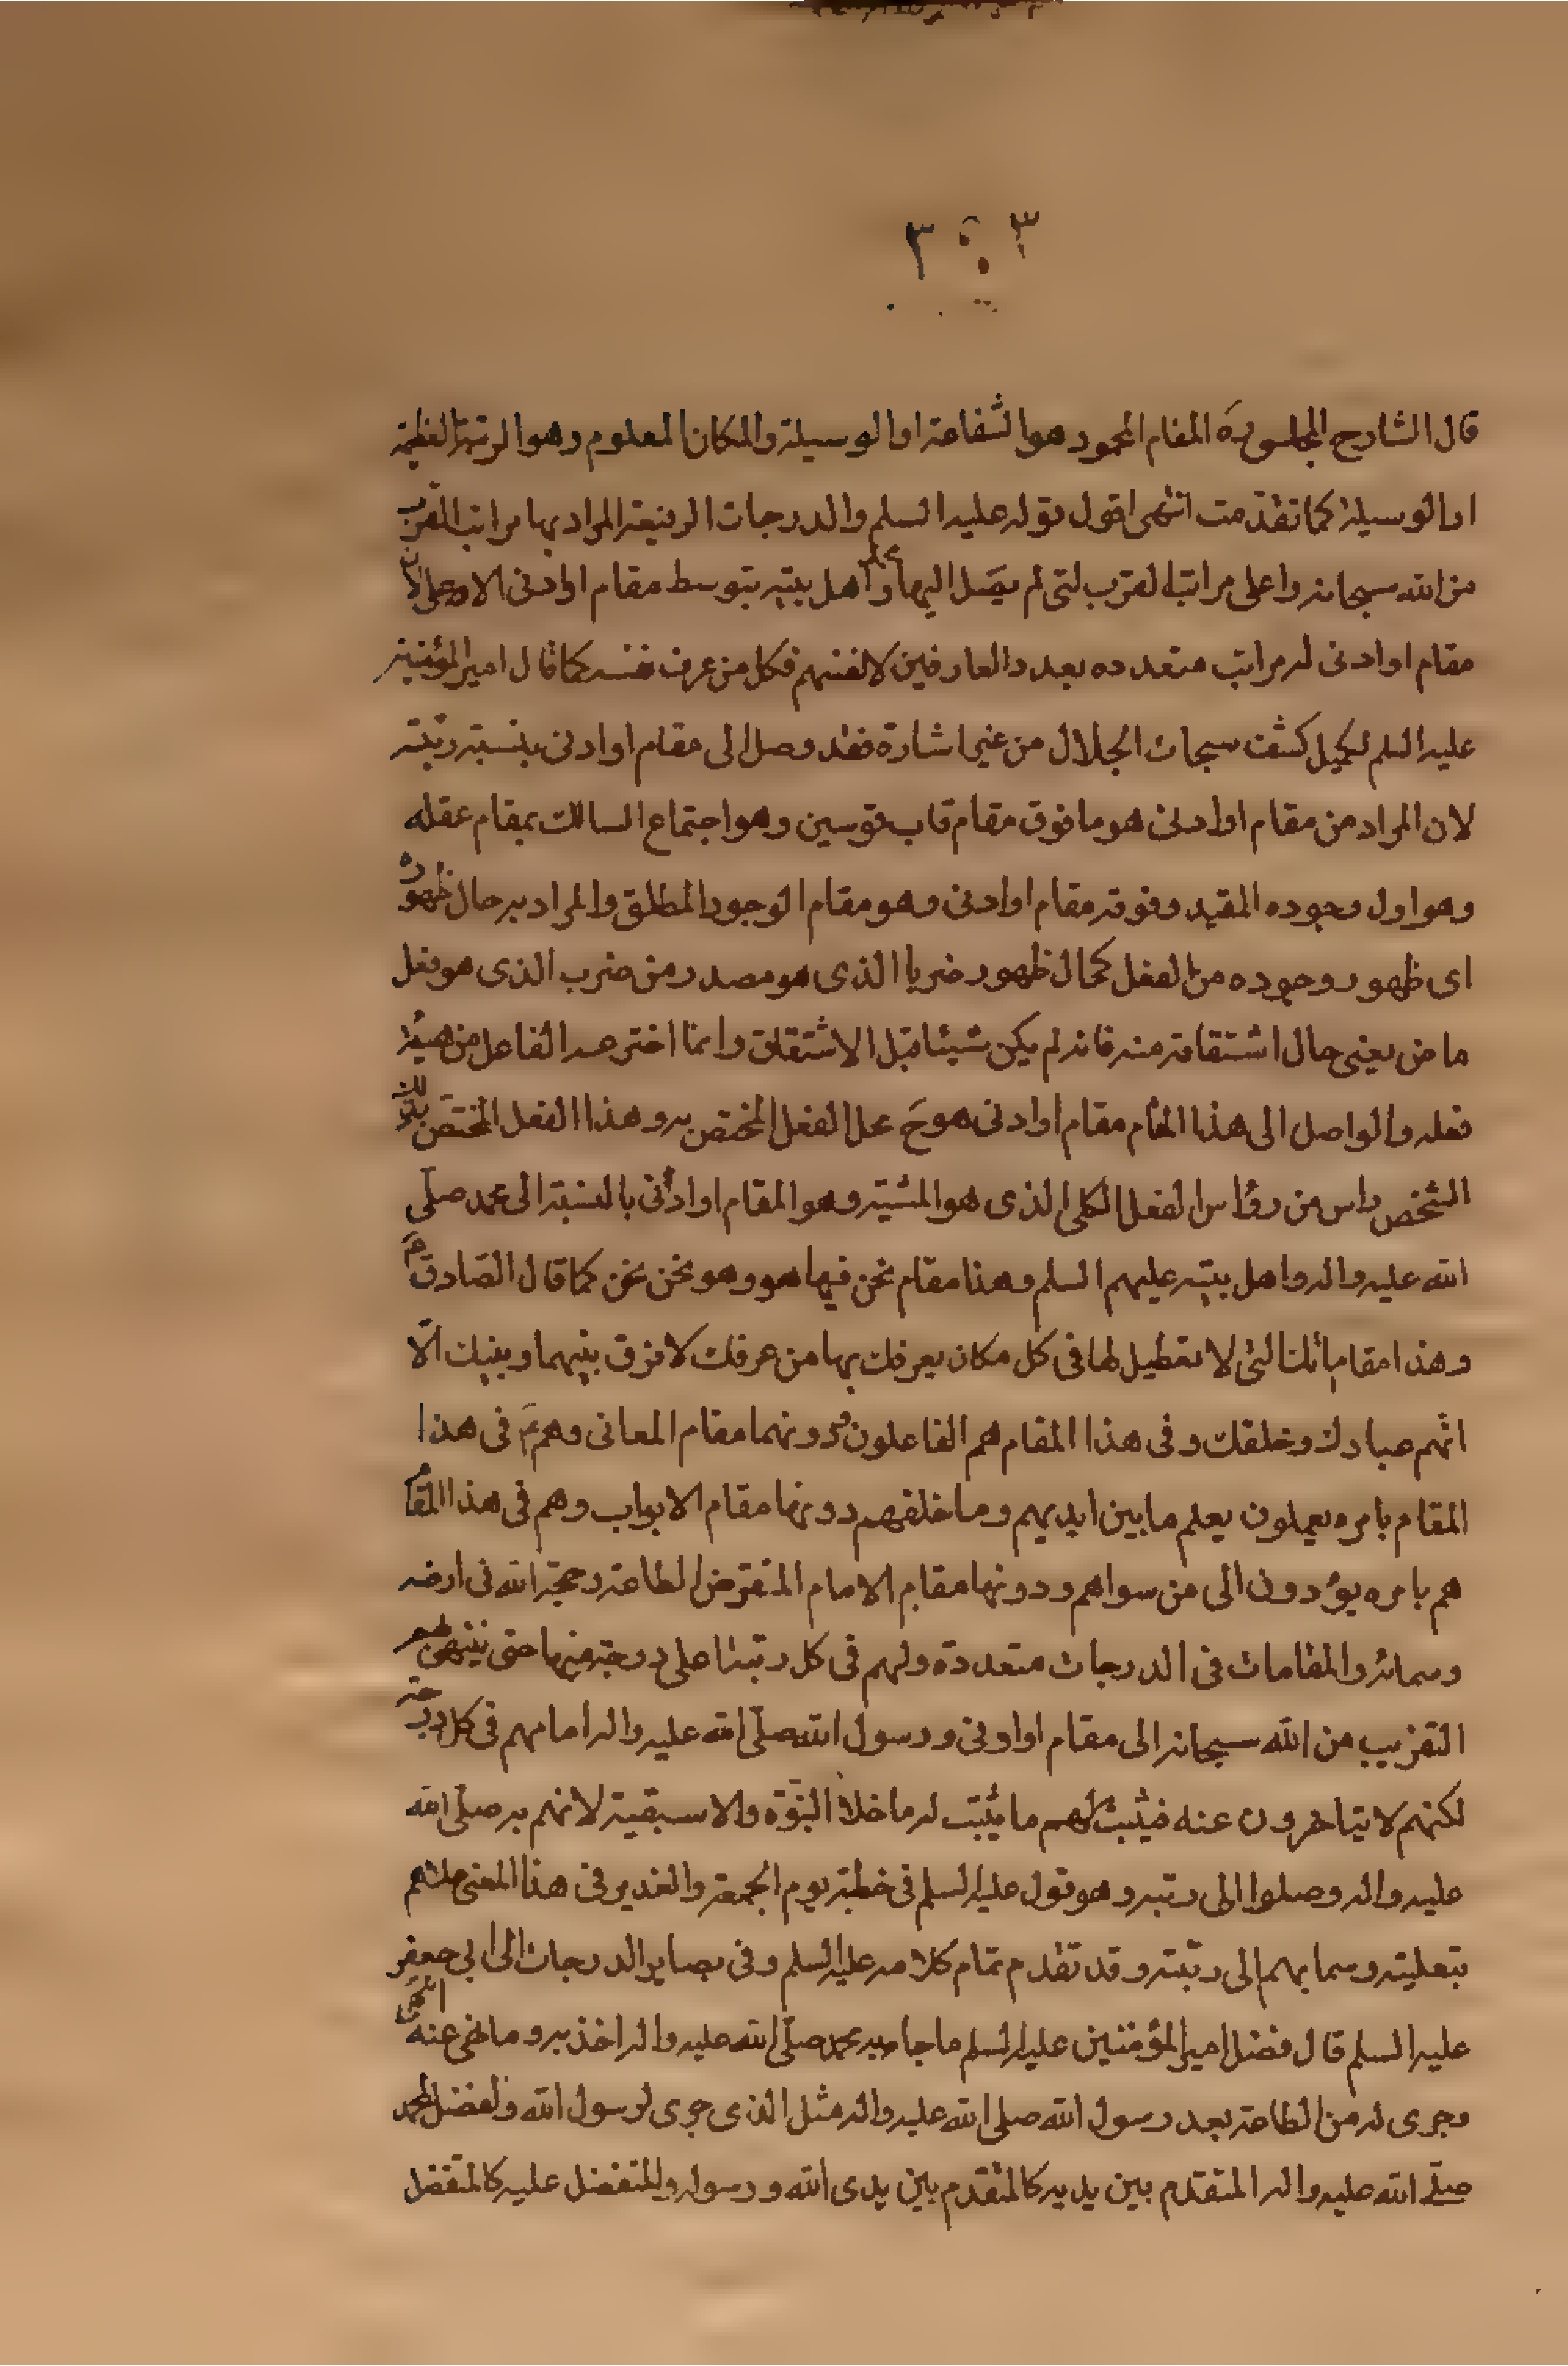 ٣ ٣
قال الشارح المجلسى ره المقام المحمود هو الشفاعة او الوسيلة والمكان المعلوم وهو الرتبة العظيمة
او الوسيلة كما تقدمت انتهى اقول قوله عليه السلم والدرجات الرفيعة المراد بها مراتب القرب
من الله سبحانه واعلى مراتب القرب لتى لم يصل اليها محمد واهل بيته بتوسط مقام او ادنى الا وعلى لان
مقام او ادنى له مراتب متعدده بعدد العارفين لانفسهم فكل من عرف نفسه كما قال امير المؤمنين
عليه السلم لكميل كشف سبحات الجلال من غير اشارة فقد وصل الى مقام او ادنى بنسبة رتبته
لان المراد من مقام او ادنى هو ما فوق مقام قاب قوسين وهو اجتماع السالك بمقام عقله
وهو اول وجوده المقيد وفوقه مقام او ادنى وهو مقام الوجود المطلق والمراد به حال ظهوره
اى ظهور وجوده من الفعل كحال ظهور ضربا الذى هو مصدر من ضرب الذى هو فعل
ماض يعنى حال اشتقاقه منه فانه لم يكن شيئا قبل الاشتقاق وانما اخترعه الفاعل من هيئة
فعله والواصل الى هذا المقام مقام او ادنى هو ح محل الفعل المختص به وهذا الفعل المختص بذلك
الشخص راس من رؤاس الفعل الكلى الذى هو المشية وهو المقام او ادنى بالنسبة الى محمد صلى
الله عليه واله واهل بيته عليهم السلم وهذا مقام نحن فيها هو وهو نحن نحن كما قال الصادق ع
وهذا مقاماتك التى لا تعطيل لها فى كل مكان يعرفك بها من عرفك لا فرق بينهما وبينك الا
انهم عبادك وخلقك وفى هذا المقام هم الفاعلون ودونهما مقام المعانى وهم فى هذا
المقام بامره يعملون يعلم ما بين ايديهم وما خلفهم ودونها مقام الابواب وهم فى هذا المقام
هم بامره يؤدون الى من سواهم ودونها مقام الامام المفترض الطاعة وحجة الله فى ارضه
وسمائه والمقامات فى الدرجات متعددة ولهم فى كل رتبة اعلى درجة منها حتى ينتهى بهم
التقريب من الله سبحانه الى مقام او ادنى ورسول الله صلى الله عليه واله امامهم فى كل درجة
لكنهم لا يتاخرون عنه فيثبت لهم ما يثبت له ما خلا النبوة والاسبقية لانهم به صلى الله
عليه واله وصلوا الى رتبه وهو قول عليه السلم فى خطبة يوم الجمعة والغدير فى هذا المعنى علاهم
بتعليته وسما بهم الى رتبته وقد تقدم تمام كلامه عليه السلم وفى بصاير الدرجات الى ابى جعفر
عليه السلم قال فضل امير المؤمنين عليه السلم ما جاء به محمد صلى الله عليه واله اخذ به وما نهى عنه انتهى
وجرى له من الطاعة بعد رسول الله صلى الله عليه واله مثل الذى جرى لرسول الله والفضل لمحمد
صلى الله عليه واله المتقدم بين يديه كالمتقدم بين يدى الله ورسوله والمتفضل عليه كالمتفضل